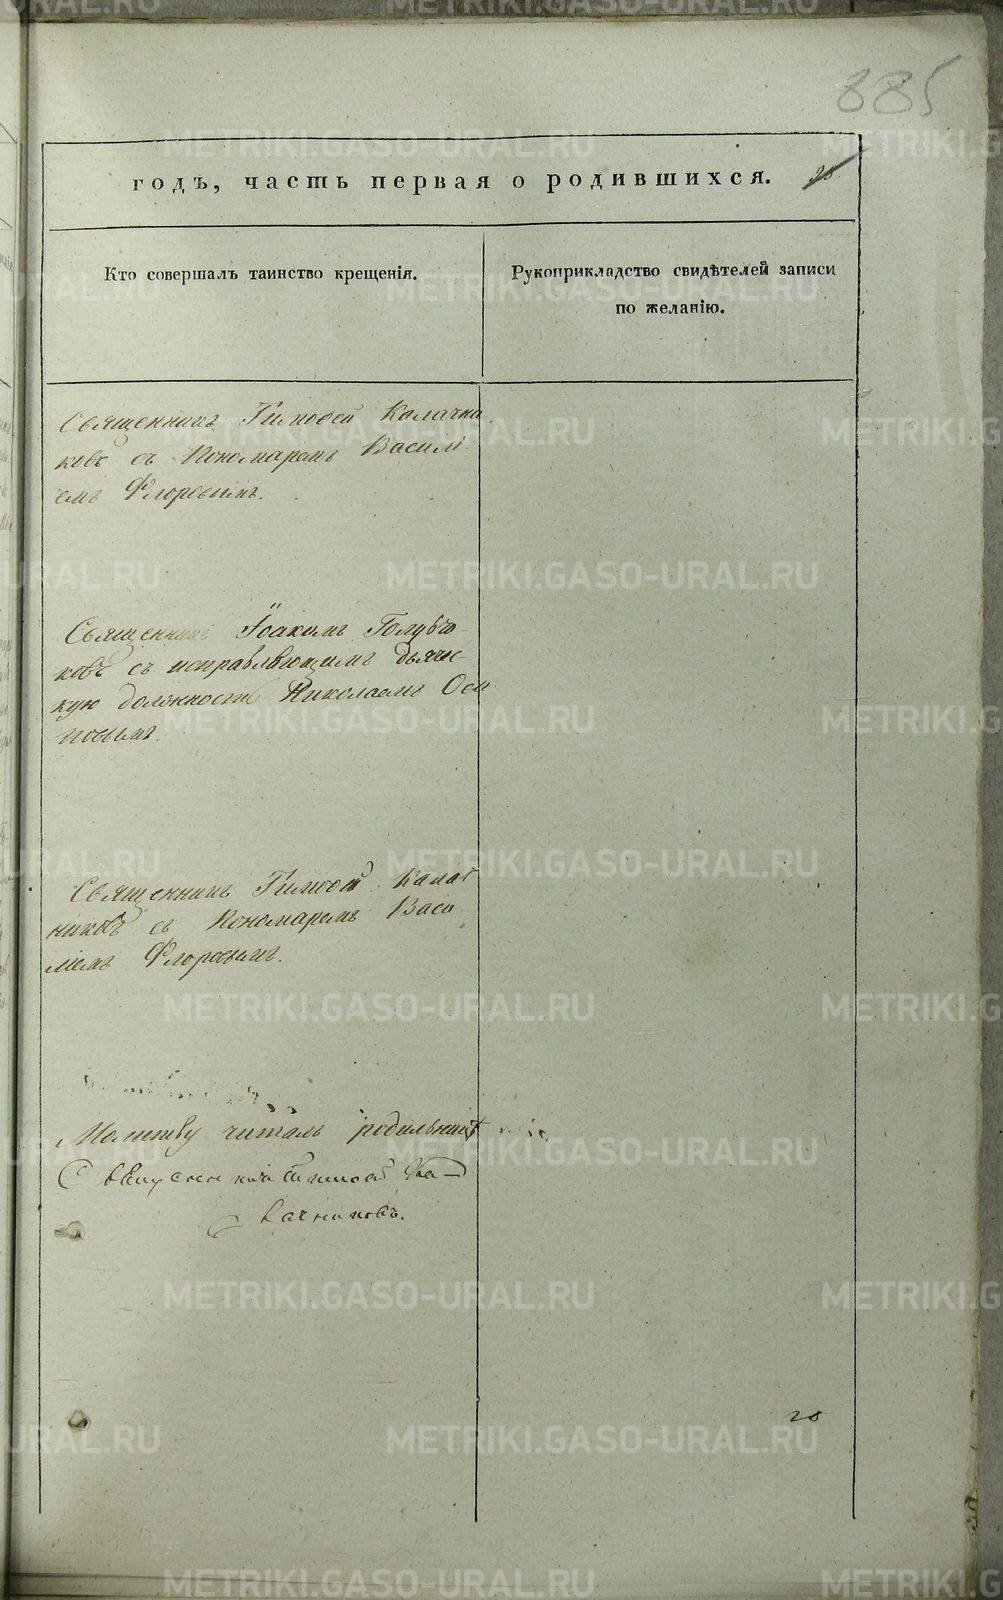 885
годъ, часть первая о родившихся.
Кто совершалъ таинство крещенія.
Рукоприкладство свидѣтелей записи
по желанію.
Священникъ Тимоѳей Калачни
ковъ съ Пономаремъ Василі
емъ Флоровымъ.
Священникъ Іоакимъ Голубчи
ковъ съ исправляющимъ дьячес
кую должность Николаемъ Оси
повымъ.
Священникъ Тимоѳей Калач
никовъ съ Пономаремъ Васи
ліемъ Флоровымъ.
Молитву читалъ
Священникъ Тимоѳей Ка
лачниковъ.
METRIKI.GASO-URAL.RU